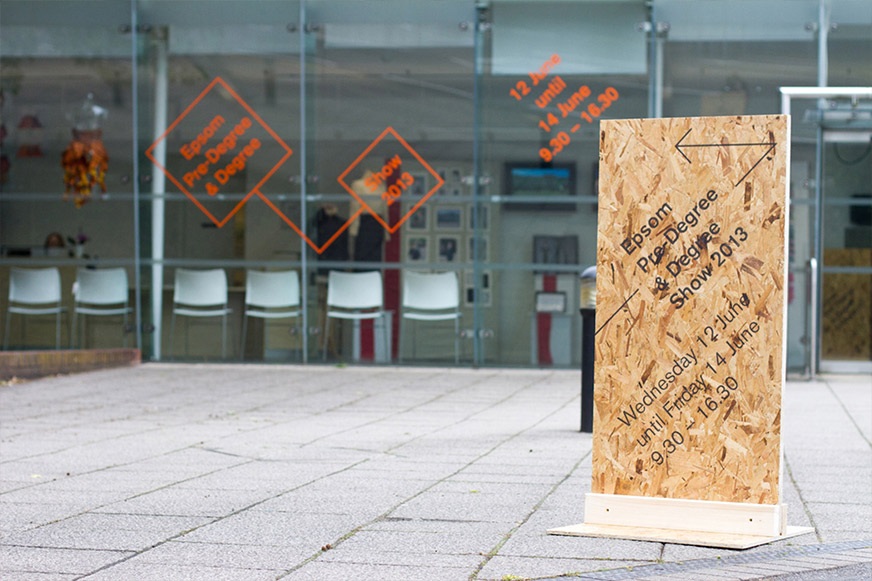 Epsom
Pre-Degree
& Degree
Show
2013
12 June
until
14 June
9.30 – 16.30
Epsom
Pre-Degree
& Degree
Show 2013
Wednesday, 12 June
until Friday, 14 June
9.30 – 16.30